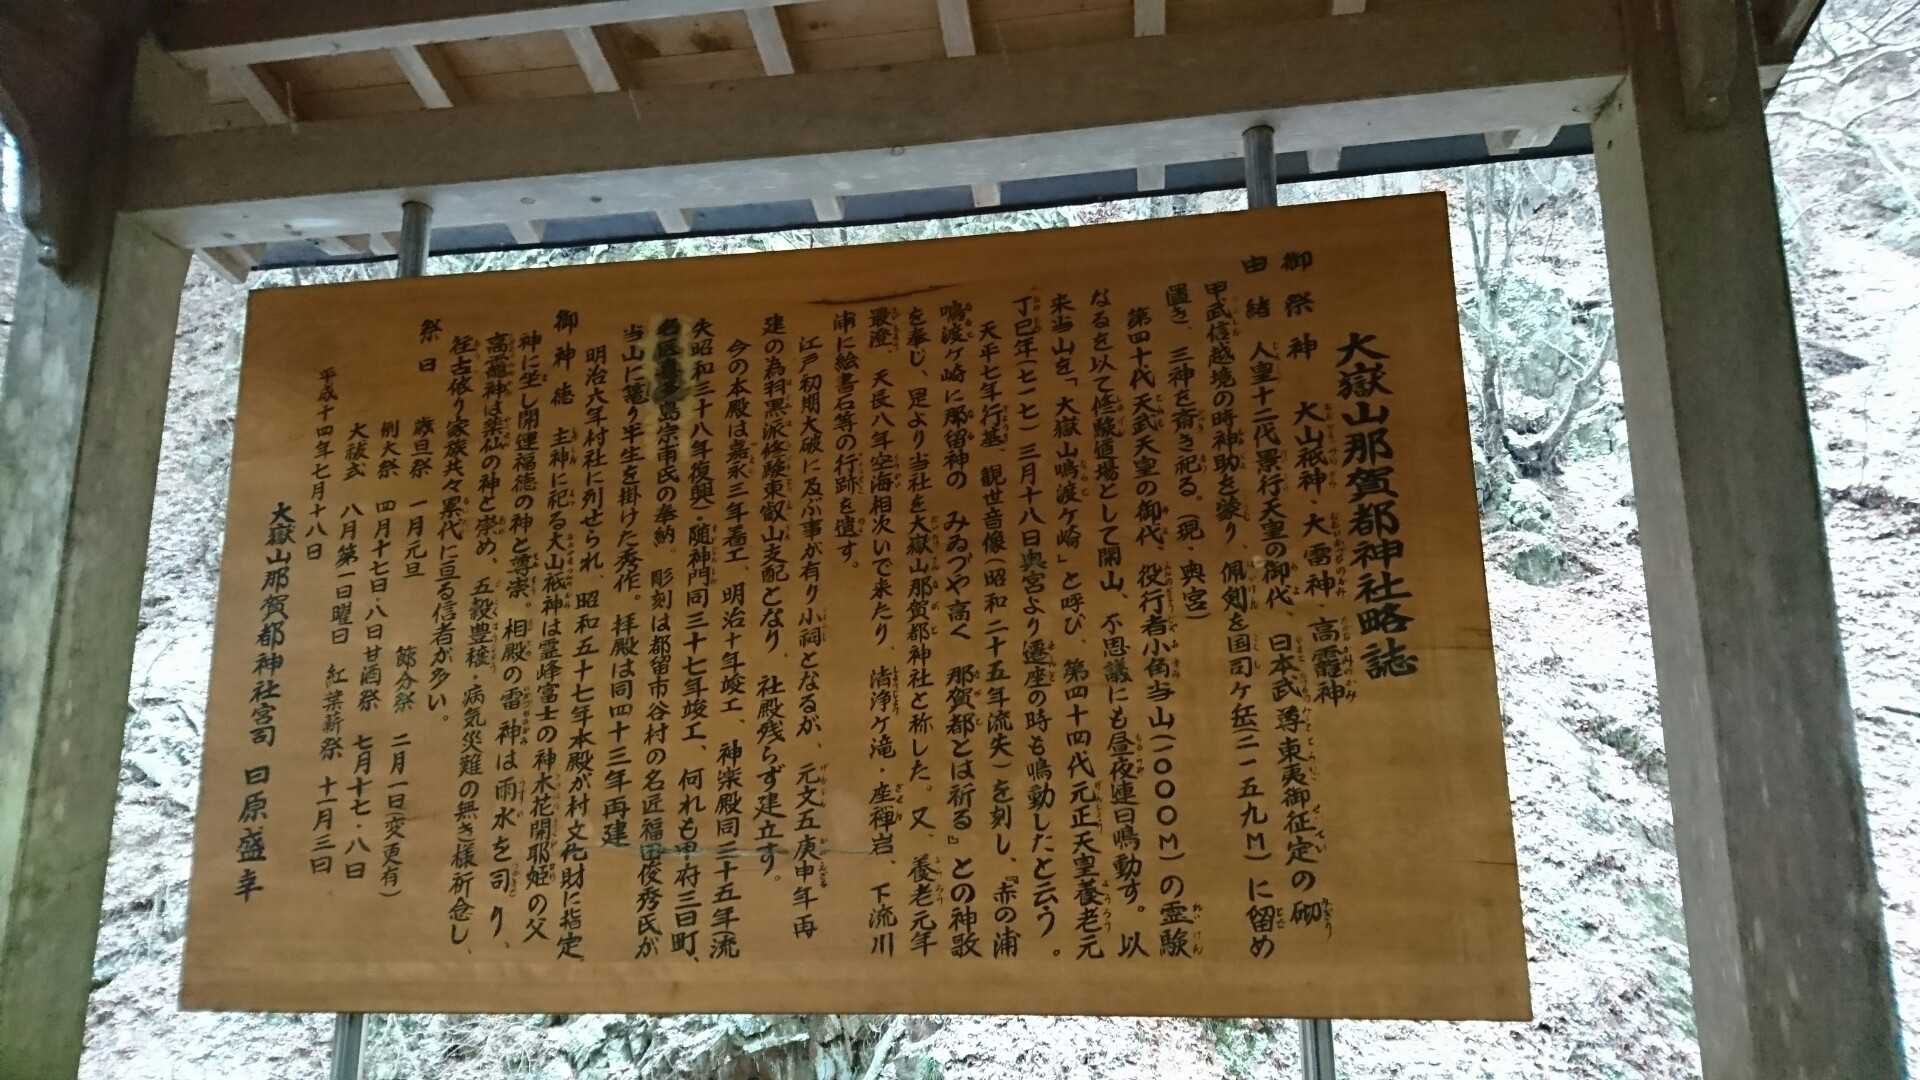 大嶽山那賀都神社略誌
御祭神　大山祇神、大雷神、高靇神
由緒　人皇十二代景行天皇の御代、日本武尊東夷御征定の砌
甲武信越境の時神助を蒙り、佩剣を国司ヶ岳(二一五九M)に留め
置き、三神を斎き祀る。(現・奥宮)
第四十代天武天皇の御代、役行者小角当山(一〇〇〇M)の霊験
なるを以て修験道場として開山、不思議にも昼夜連日鳴動す。以
来当山を「大嶽山鳴渡ヶ崎」と呼び、第四十四代元正天皇養老元
丁巳年(七一七)三月十八日奥宮より遷座の時も鳴動したと云う。
天平七年行基、観世音像(昭和二十五年流失)を刻し、『赤の浦
鳴渡ヶ崎に那留神の　みゐづや高く　那賀都とは祈る』との神歌
を奉じ、是より当社を大嶽山那賀都神社と称した。又、養老元年
最澄、天長八年空海相次いで来たり、清浄ヶ滝・座禅岩、下流川
浦に絵書石等の行跡を遺す。
江戸初期大破に及ぶ事が有り小祠となるが、元文五庚申年再
建の為羽黒派修験東叡山支配となり、社殿残らず建立す。
今の本殿は嘉永三年着工、明治十年竣工、神楽殿同三十五年(流
失昭和三十八年復興)随神門同三十七年竣工、何れも甲府三日町、
名匠 島宗甫氏の奉納。彫刻は都留市谷村の名匠福田俊秀氏が
当山に篭り半生を掛けた秀作。拝殿は同四十三年再建
明治六年村社に列せられ、昭和五十七年本殿が村文化財に指定。
御神徳　主神に祀る大山祇神は霊峰富士の神木花開耶姫の父
神に坐し開運福徳の神と尊崇。相殿の雷神は雨水を司り、
高靇神は薬仙の神と崇め、五穀豊穣・病気災難の無き様祈念し、
往古依り家族共々累代に亘る信者が多い。
祭日
歳旦祭　一月元旦　節分祭　二月一日(変更有)
例大祭　四月十七日・八日甘酒祭　七月十七・八日
大祓式　八月第一日曜日　紅葉薪祭　十一月三日
平成十四年七月十八日
大嶽山那賀都神社宮司　日原盛幸